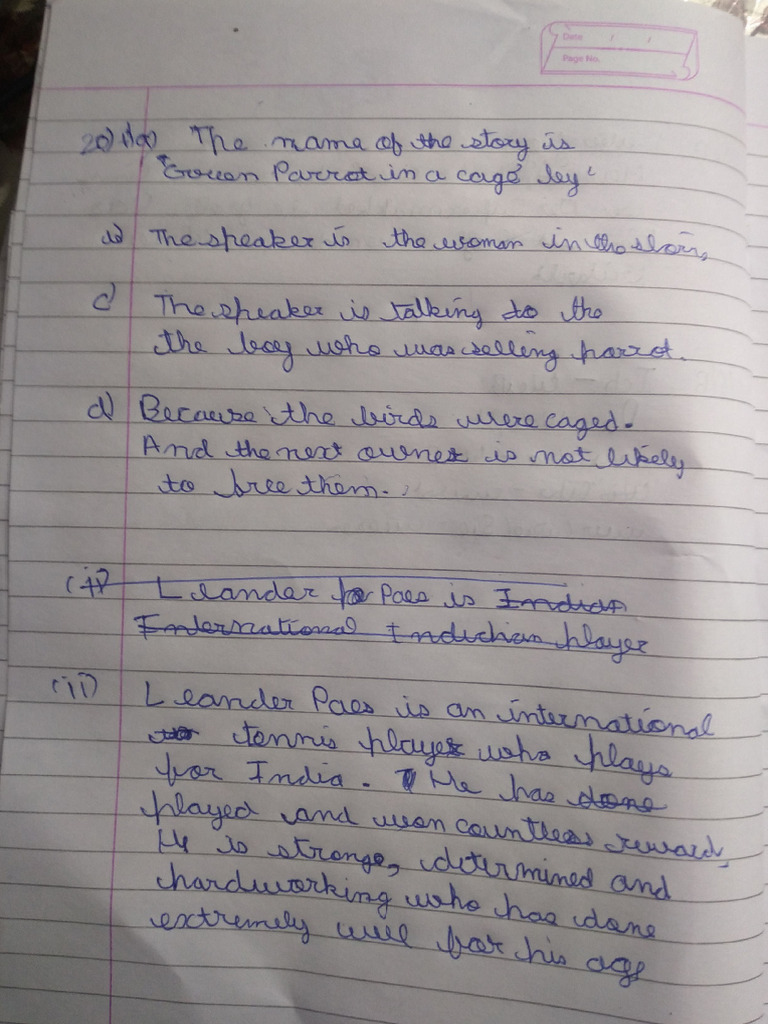 Date / /
Page No.
20) i) a) The name of the story is
"Green Parrot in a cage' by'
b) The speaker is the woman in the
c) The speaker is talking to the
the boy who was selling parrot.
d) Because the birds were caged.
And the next owner is not likely
to free them.
(ii) Leander Paes is Indian
International Indichian player
(ii) Leander Paes is an international
tennis player who plays
for India. He has done
played and won countless reward,
He is stronge, determined and
hardworking who has done
extremely well for his age